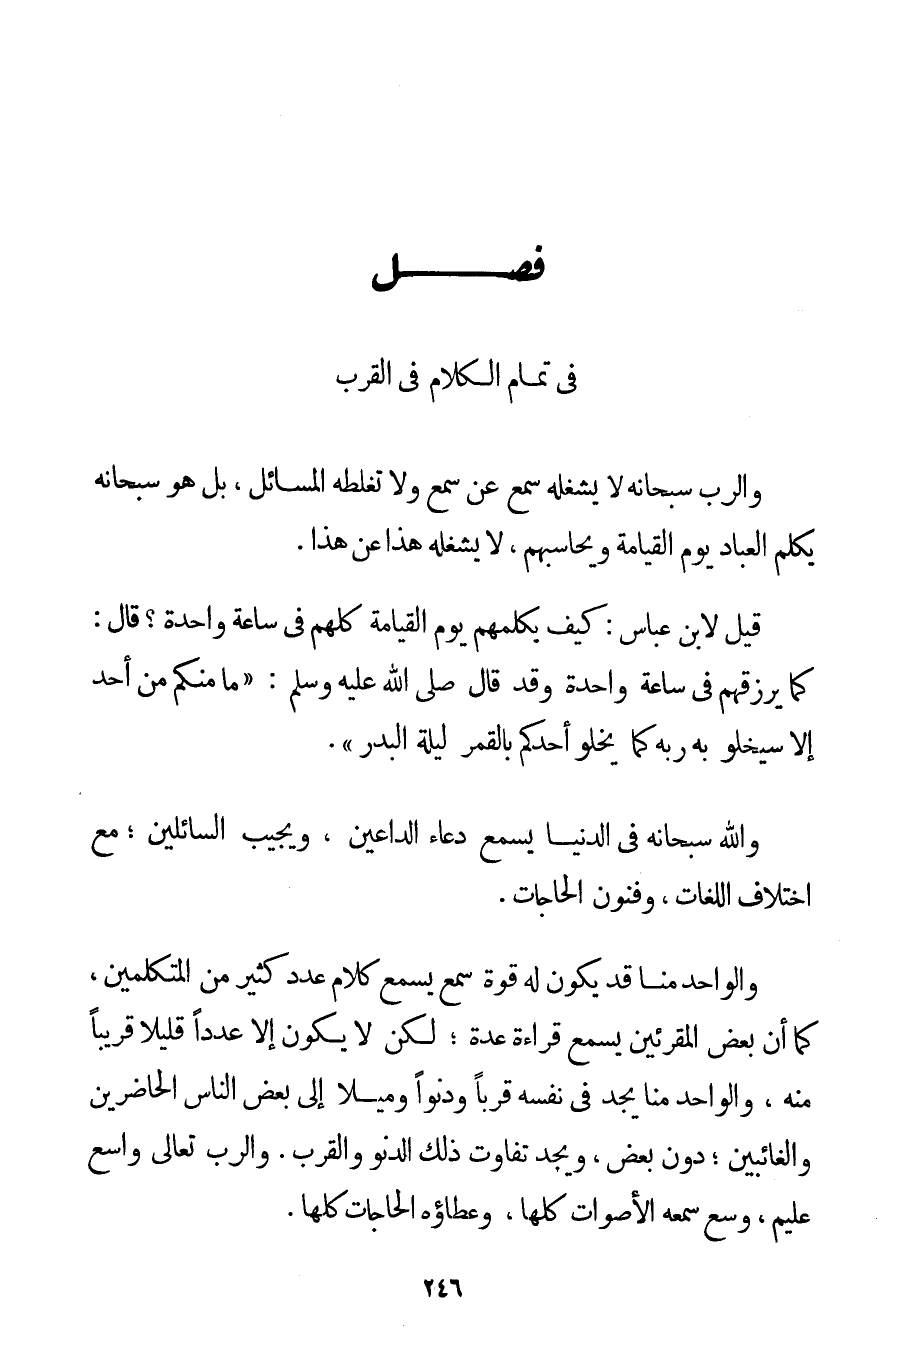 فصل
فى تمام الكلام فى القرب
والرب سبحانه لا يشغله سمع عن سمع ولا تغلطه المسائل ، بل هو سبحانه
يكلم العباد يوم القيامة ويحاسبهم ، لا يشغله هذا عن هذا .
قيل لابن عباس : كيف يكلمهم يوم القيامة كلهم فى ساعة واحدة ؟ قال :
كما يرزقهم فى ساعة واحدة وقد قال صلى الله عليه وسلم : « ما منكم من أحد
إلا سيخلو به ربه كما يخلو أحدكم بالقمر ليلة البدر » .
والله سبحانه فى الدنيا يسمع دعاء الداعين ، ويجيب السائلين ؛ مع
اختلاف اللغات ، وفنون الحاجات .
والواحد منا قد يكون له قوة سمع يسمع كلام عدد كثير من المتكلمين ،
كما أن بعض المقرئين يسمع قراءة عدة ؛ لكن لا يكون إلا عدداً قليلا قريباً
منه ، والواحد منا يجد فى نفسه قرباً ودنواً وميلا إلى بعض الناس الحاضرين
والغائبين ؛ دون بعض ، ويجد تفاوت ذلك الدنو والقرب . والرب تعالى واسع
عليم ، وسع سمعه الأصوات كلها ، وعطاؤه الحاجات كلها .
٢٤٦